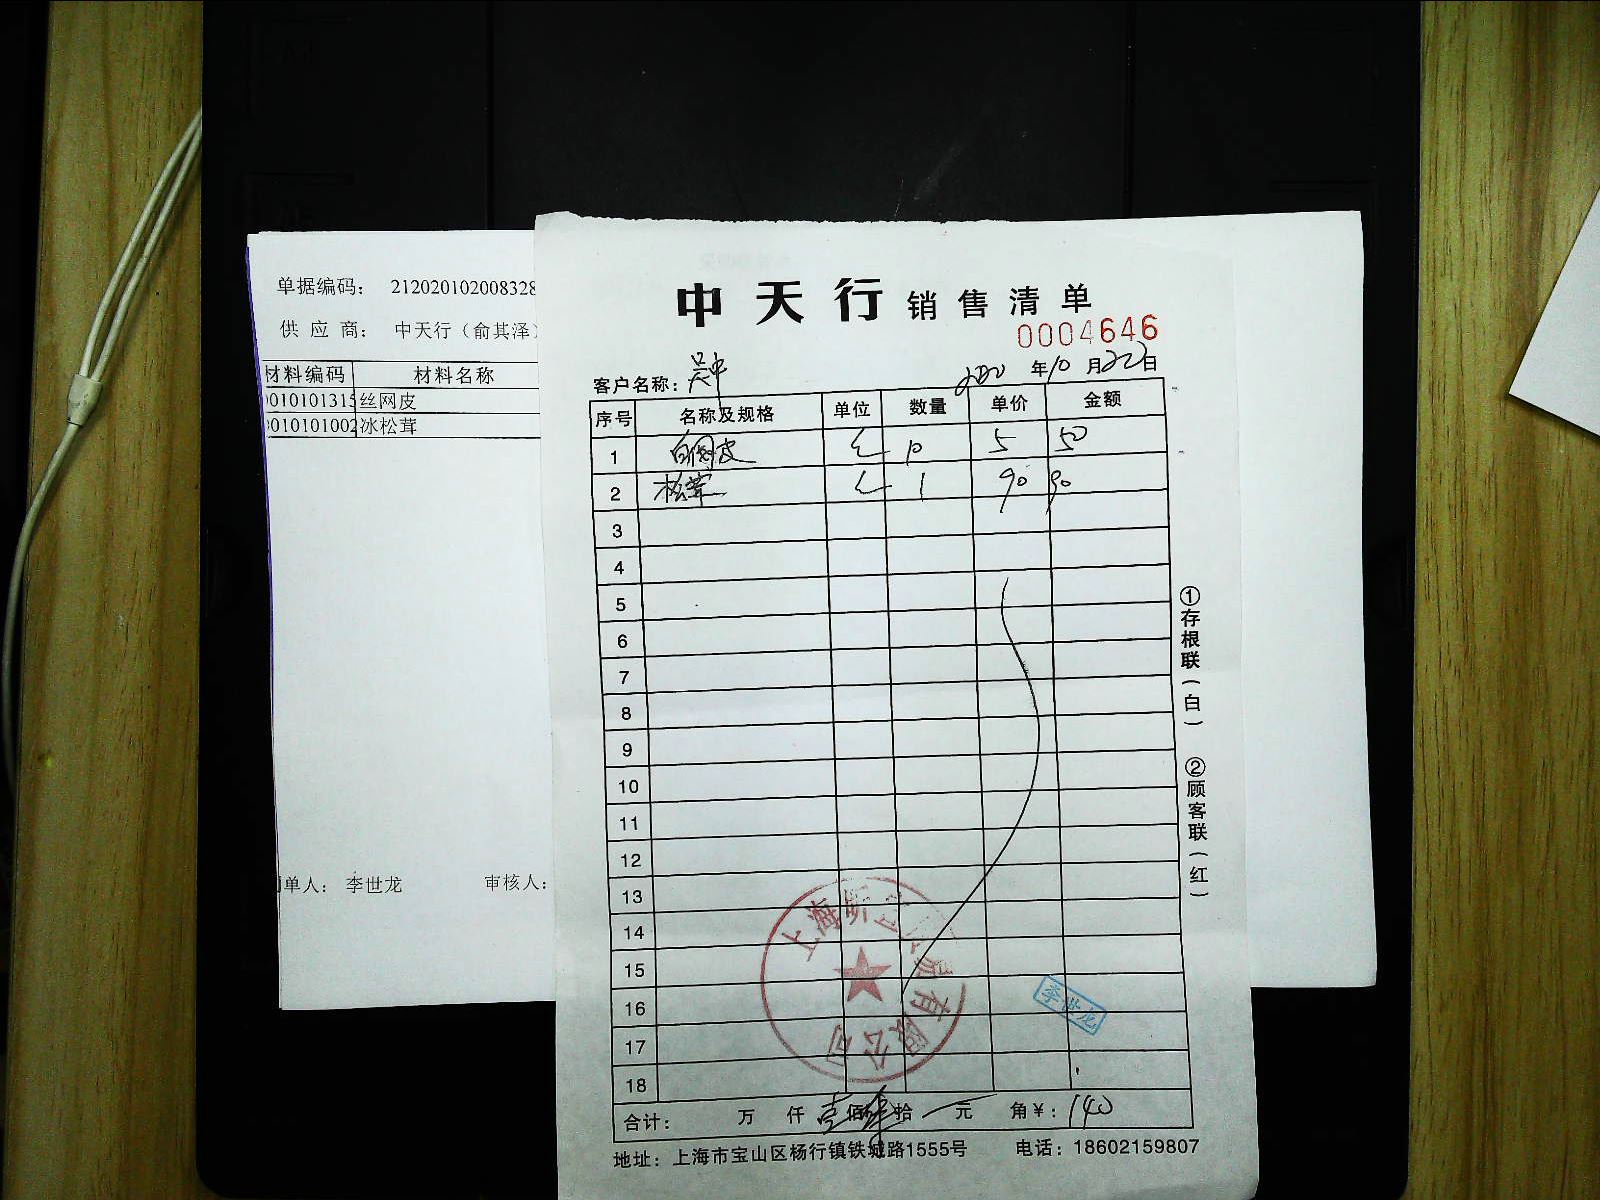 单据编码： 212020102008328
供 应 商： 中天行（俞其泽）
材料编码 材料名称
010101315 丝网皮
010101002 冰松茸
制单人： 李世龙 审核人：
中天行 销售清单
0004646
客户名称：吴中 2020 年 10 月 22 日
序号 名称及规格 单位 数量 单价 金额
1 白网皮 10 5 50
2 松茸 1 90 90
3
4
5
6
7
8
9
10
11
12
13
14
15
16
17
18
合计： 万 仟 壹 佰 肆 拾 元 角 ¥：140
地址：上海市宝山区杨行镇铁城路1555号 电话：18602159807
①存根联（白）
②顾客联（红）
上海 有限公司
李世龙